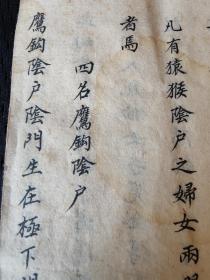 凡有猿猴陰户之婦女兩
者焉
四名鷹鈎陰户
鷹鈎陰户陰門生在極下